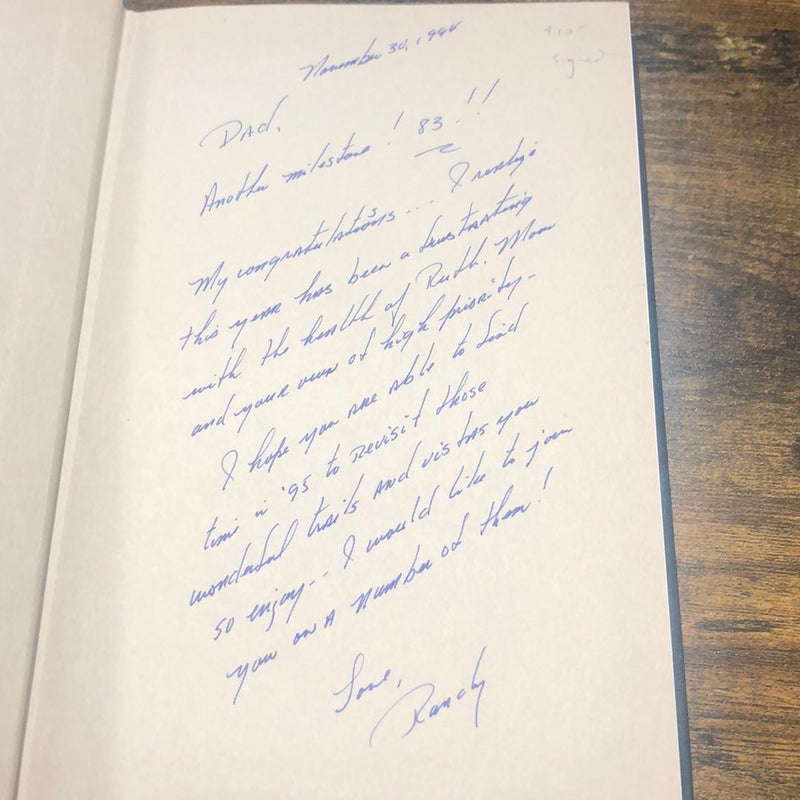 November 30, 1994
$10-
signed
Dad,
Another milestone! 83!!
My congratulations... I realize
this year has been a frustrating
with the health of Ruth. Mom
and your own of high priority-
I hope you are able to find
time in '95 to revisit those
wonderful trails and vistas you
so enjoy-- I would like to join
you on a number of them!
Love,
Randy